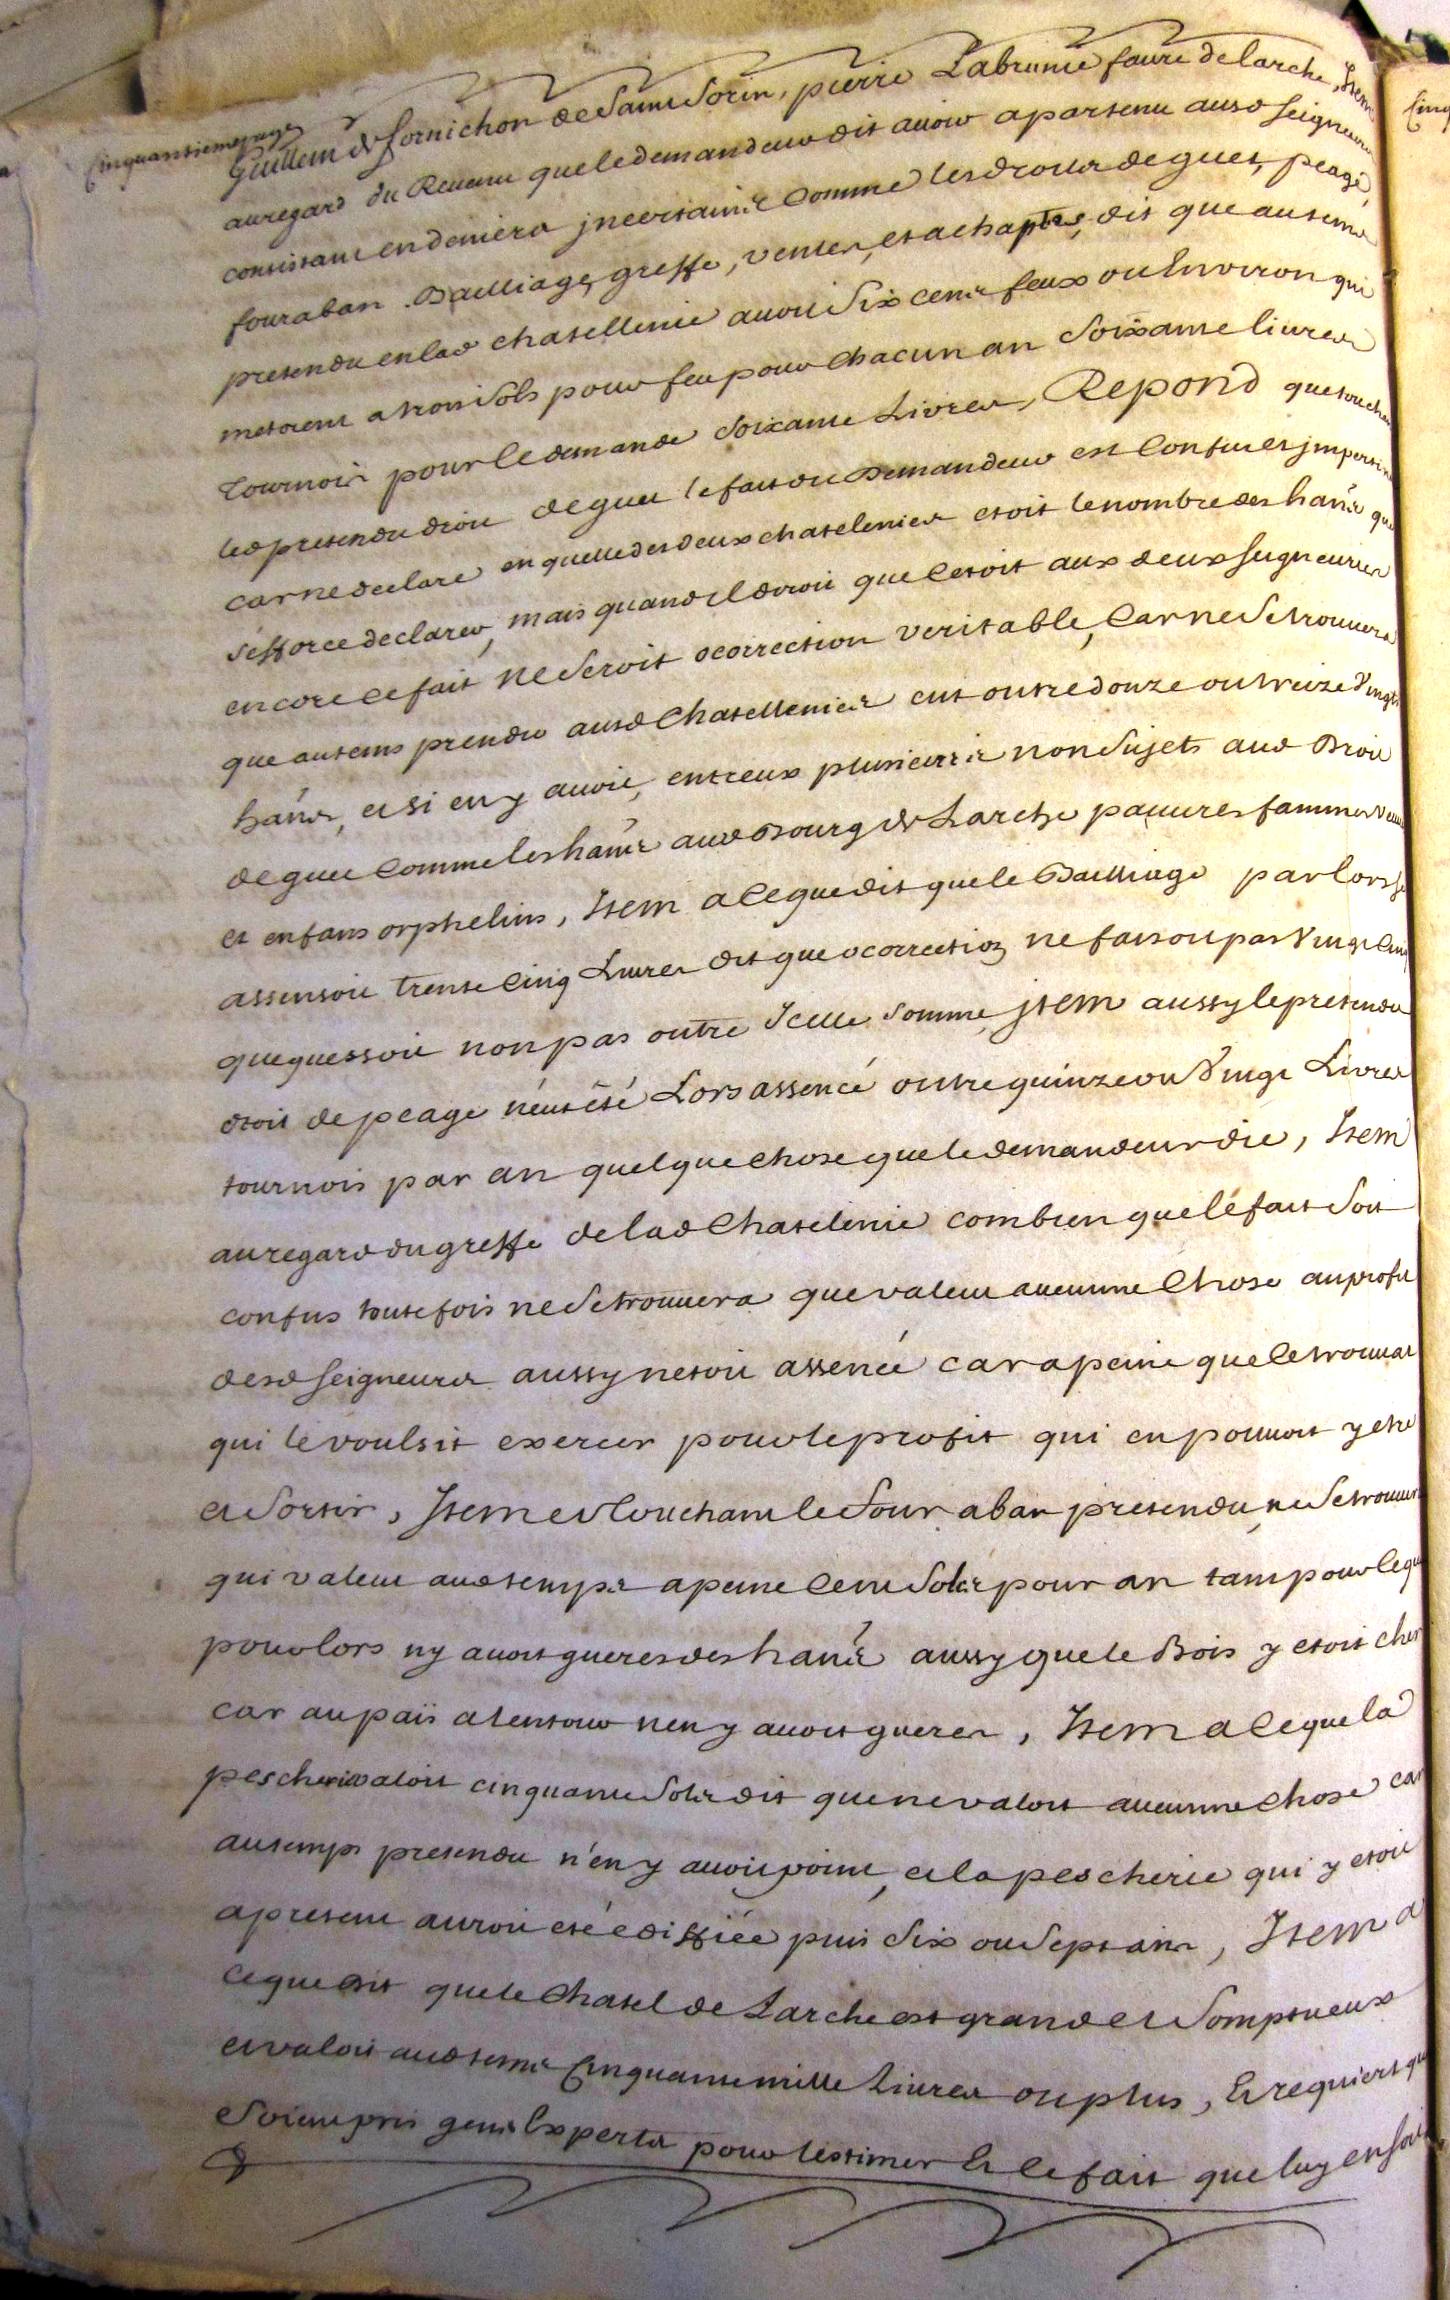 Cinquantieme page
Guillem de fornichon de Saint Sorin, pierre Labrunie faure de larche, Item
au regard du Revenu que le demandeur dit avoir apartenu ausd seigneurs
consistant en deniers jncertains comme les droits de guet, peage
four a ban Bailliage, greffe, ventes, et achaptes, dit que au tems
pretendu en lad chatellenie avoit Six cens feux ou Environ qui
metoient a trois Sols pour feu pour chacun an Soixante livres
tournois pour le demande Soixante Livres, Repond que touchant
led pretendu droit de guet le fait du Demandeur est Confus et jmpertin
car ne declare en quelle des deux chatelenies etoit le nombre des hañs que
s'efforce declarer, mais quand il diroit que c'etoit aux deux seigneuries
encore ce fait ne Seroit o correction veritable, Car ne Se trouvera
que au tems prendu ausd Chatellenies eut outre douze ou treize Vingts
hañs, et si en y avoit, entreux plusieurs non Sujets aud Droit
de guet Comme les hañs aud Bourg de Larche pauvres fammes veuves
et enfans orphelins, Item a ce que dit que le Bailliage par lors se
assensoit trente Cinq Livres dit que o correction ne faisoit pas Vingt Cinq
que que soit non pas outre Icelle Somme jtem aussy le pretendu
droit de peage n'eut été Lors assencé outre quinze ou Vingt Livres
tournois par an quelque chose que le demandeur die, Item
au regard du greffe de lad Chatelenie combien que le fait Soit
confus toutefois ne Se trouvera que valeut aucunne Chose au profit
desd seigneurs aussy n'etoit assencé car a peine que Ce trouvat
qui le voulsit exercer pour le profit qui en pouvoit y etre
et Sortir, Item et touchant le Four a ban pretendu, ne Se trouvera
qui valeut aud temps a peine Cent Sols pour an tant pour ce que
pour lors ny avoit gueres des hañs aussy que le Bois y etoit cher
car au païs alentour n'en y avoit gueres, Item a Ce que la
pescherie valoit cinquante Sols dit que ne valoit aucunne Chose car
au temps pretendu n'en y avoit point, et la pescherie qui y etoit
a present auroit eté ediffiée puis Six ou Sept ans, Item a
ce que dit que le Chatel de Larche est grand et Somptueux
et valoit aud tems Cinquante mille Livres ou plus, Et requiert que
Soient pris gens Experts pour lestimer Et Ce fait que luy en soit